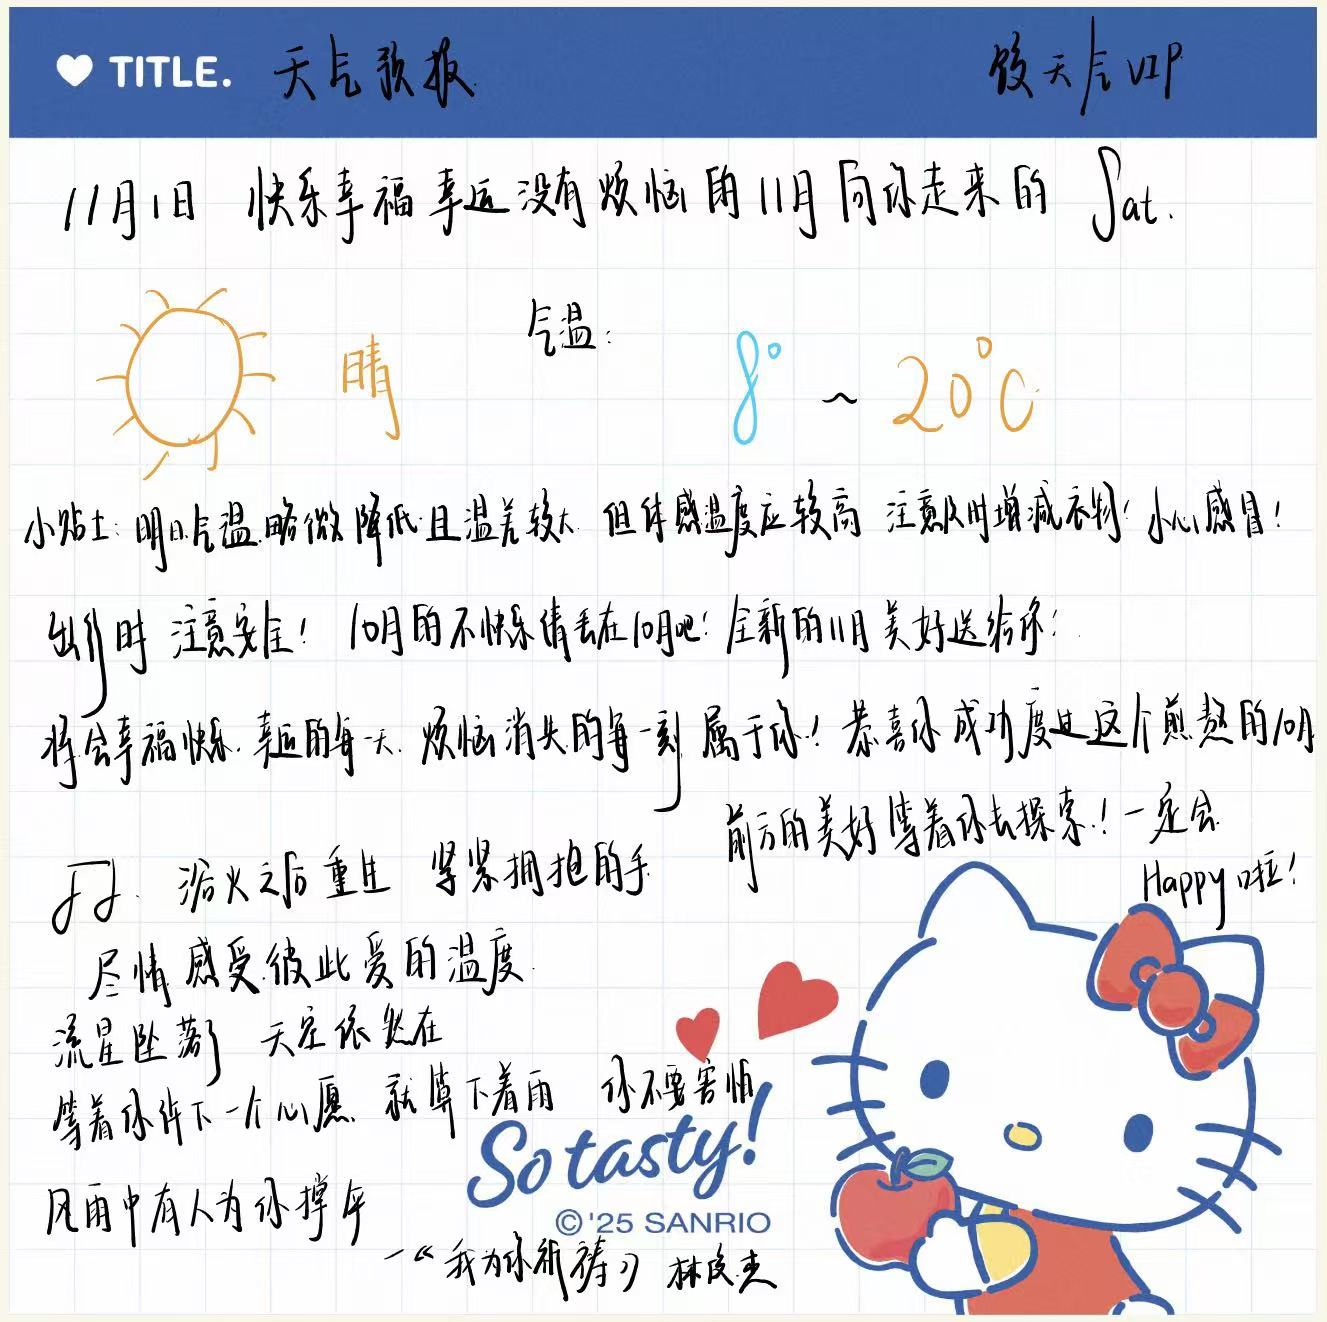 TITLE. 天气预报 饺天气VIP
11月1日 快乐幸福幸运没有烦恼的11月向你走来的 Sat.
晴 气温: 8° ~ 20°C
小贴士: 明日气温略微降低且温差较大 但体感温度应较高 注意及时增减衣物! 小心感冒!
出行时 注意安全! 10月的不快乐请丢在10月吧! 全新的11月美好送给你!
将会幸福快乐、幸运的每一天、烦恼消失的每一刻属于你! 恭喜你成功度过这个煎熬的10月
前方的美好等着你去探索! 一定会
Happy啦!
浴火之后重生 紧紧拥抱的手
尽情感受彼此爱的温度
流星坠落了 天空依然在
等着你许下一个心愿 就算下着雨 你不要害怕
风雨中有人为你撑伞
So tasty!
© '25 SANRIO
—《我为你祈祷》 林俊杰